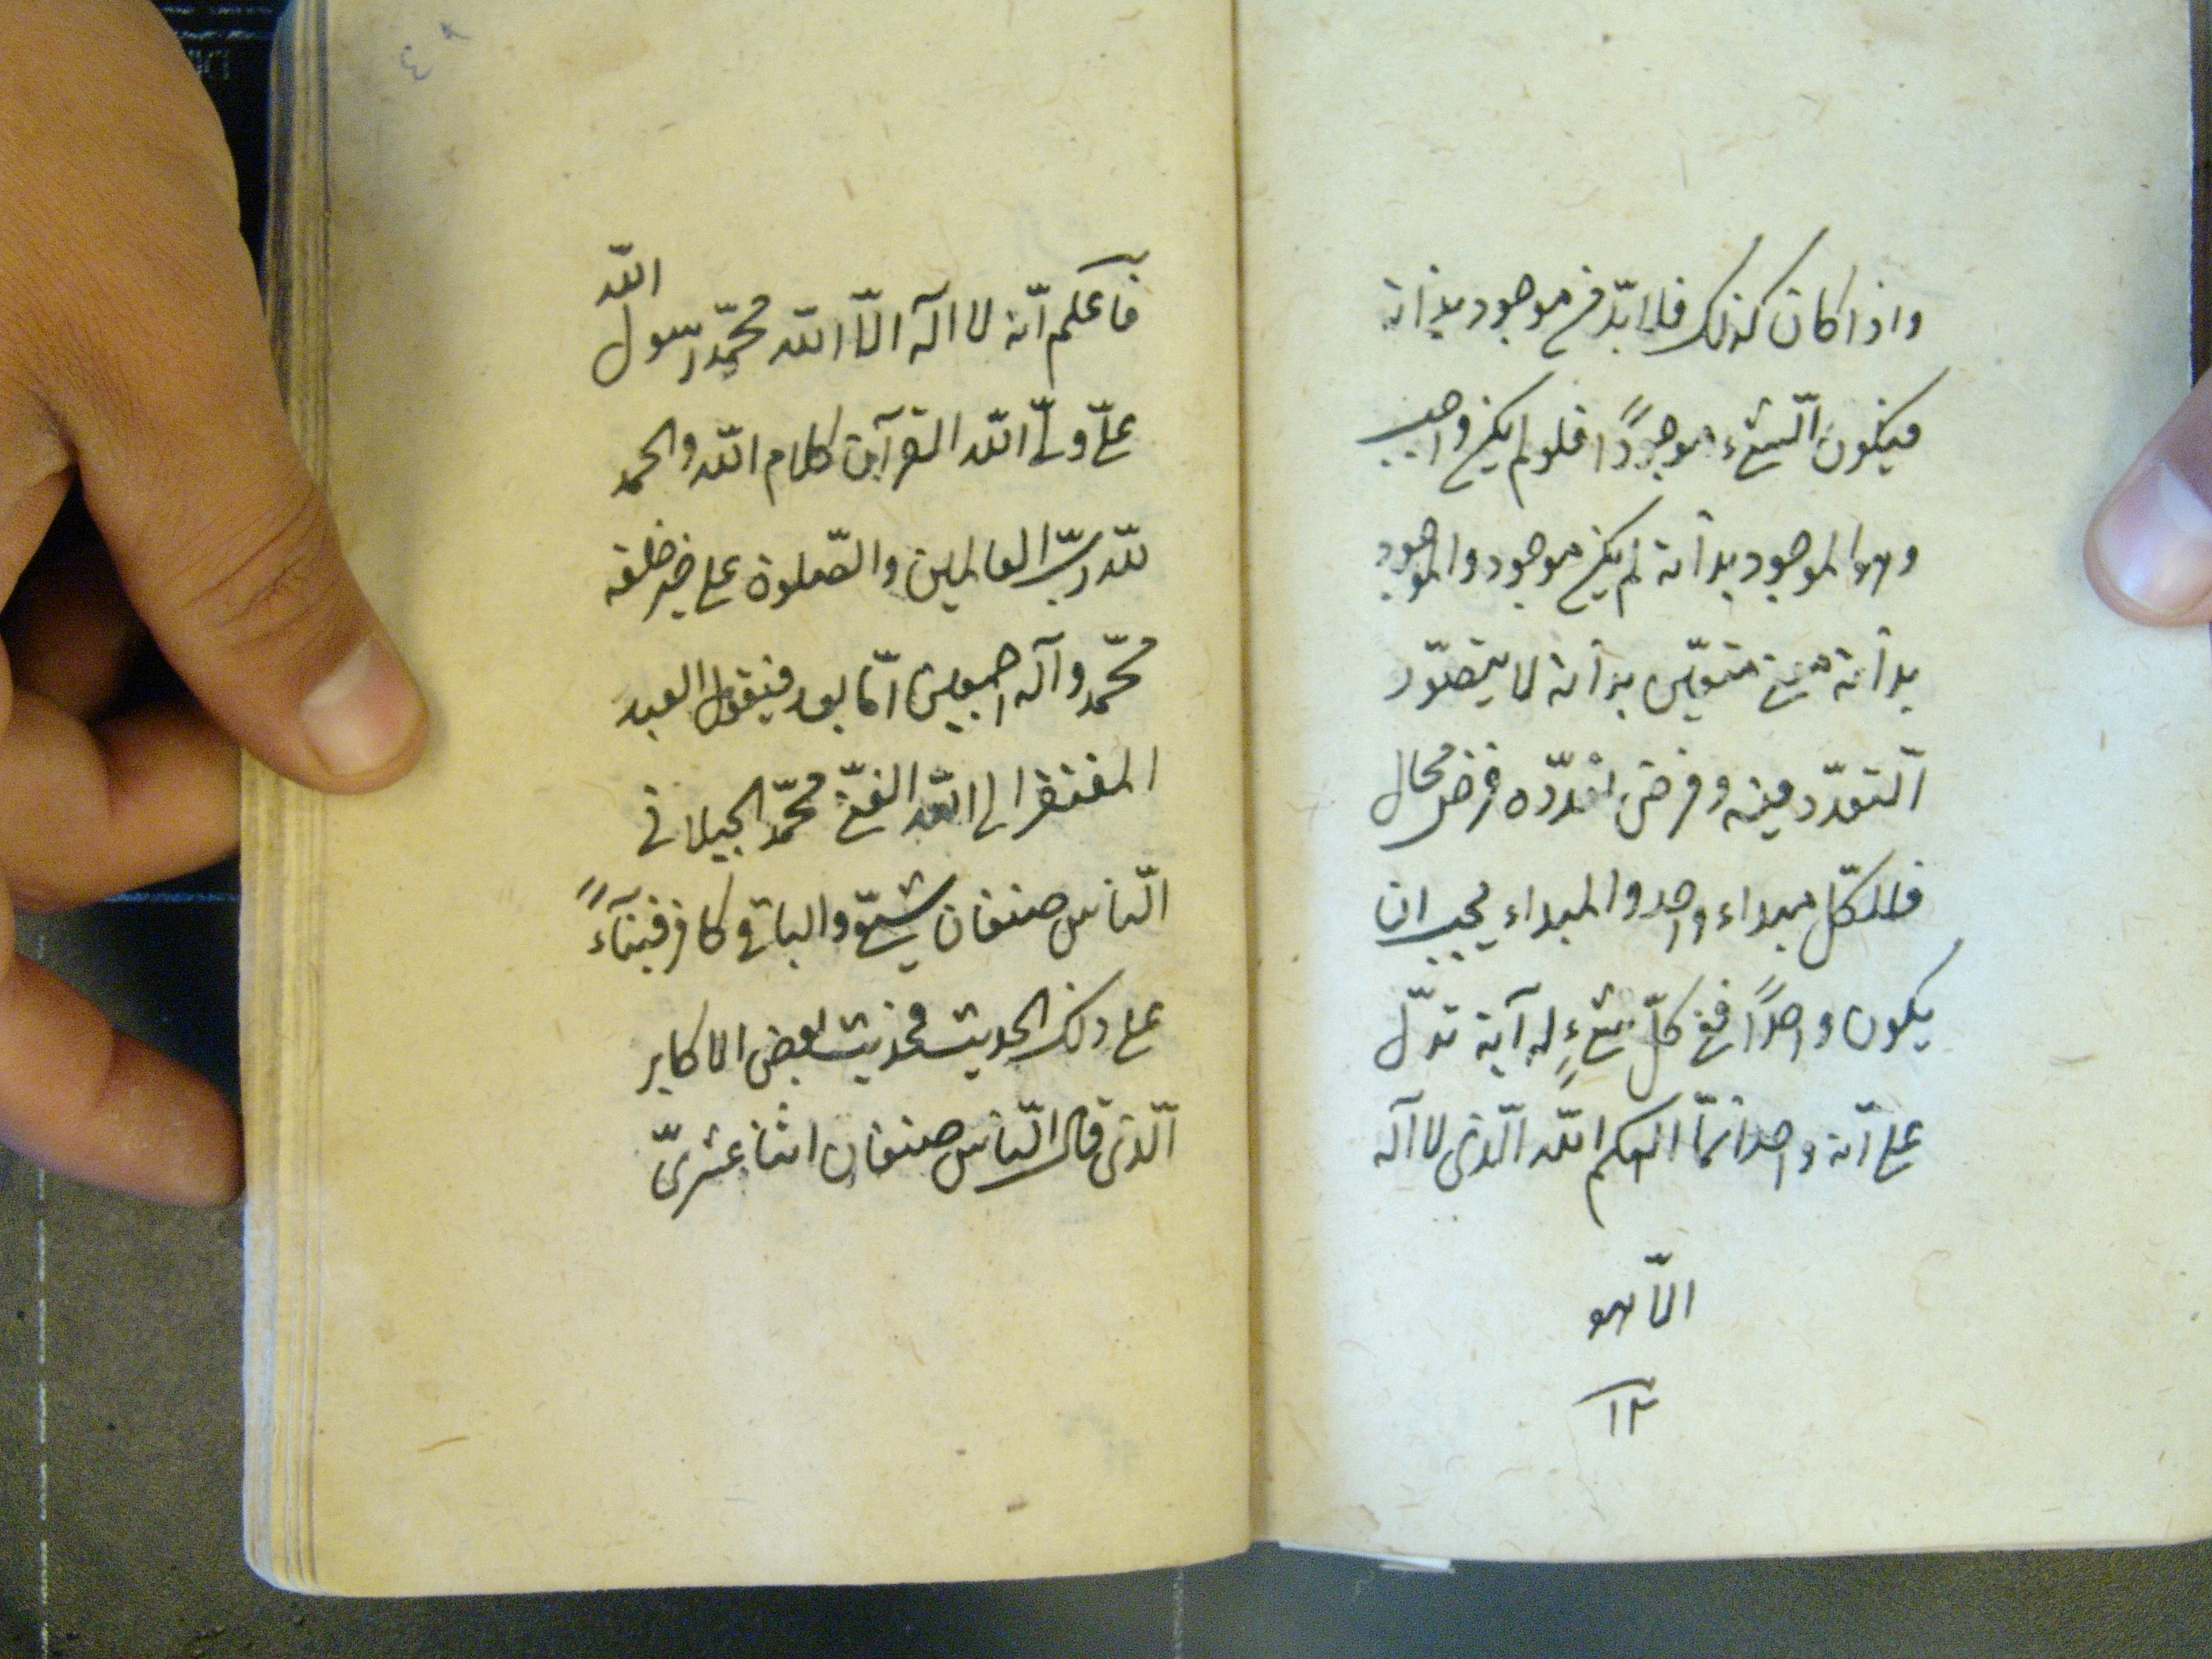 واذا كان كذلك فلا بدّ من موجود بذاته
فيكون الشيء موجودًا فلو لم يكن واجب
وهو الموجود بذاته لم يكن موجود والموجود
بذاته متعيّن بذاته لا يتصوّر
التعدّد فيه وفرض تعدّده فرض محال
فللكلّ مبداء واحد والمبداء يجب ان
يكون واحدًا ففي كلّ شيءٍ له آية تدلّ
على انّه واحد انّما الهكم اللّه الّذي لا اله
الّا هو
١٢
فاعلم انّه لا اله الّا اللّه محمّد رسول اللّه
عليّ وليّ اللّه القرآن كلام اللّه والحمد
للّه ربّ العالمين والصّلوة على خير خلقه
محمّد وآله اجمعين امّا بعد فيقول العبد
المفتقر الى اللّه الغنيّ محمّد الجيلاني
النّاس صنفان شيعيّ والباقي كافر فبنآءً
على ذلك الحديث بعض الاكابر
الّذي قال النّاس صنفان اثنا عشريّ